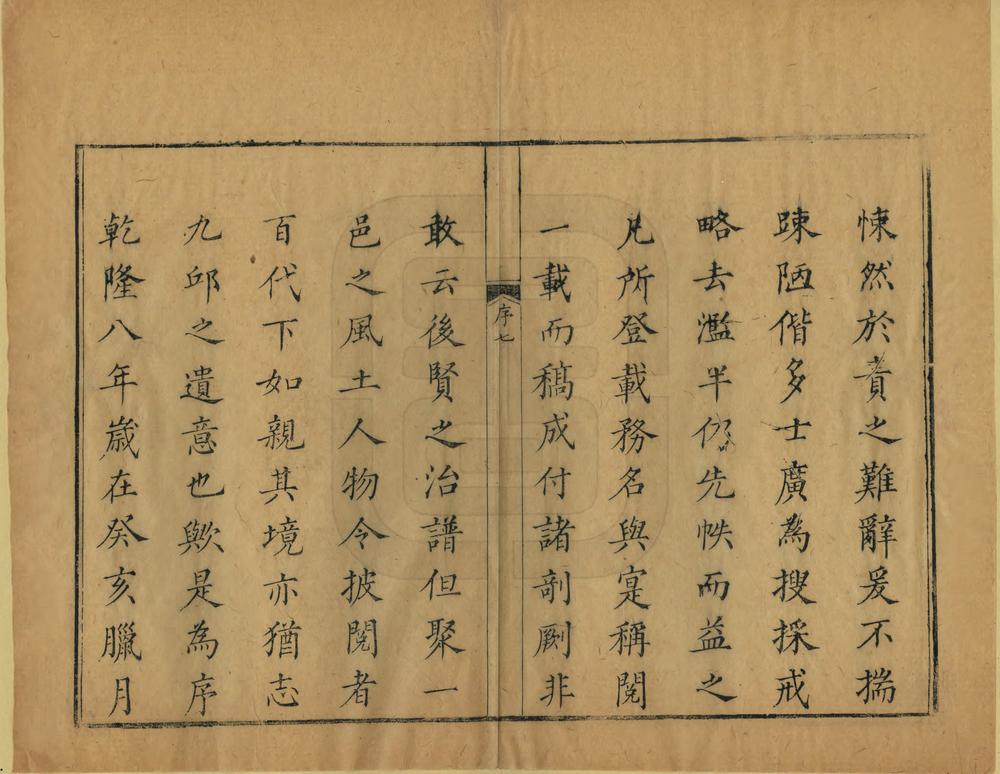 悚然於責之難辭爰不揣
踈陋偕多士廣為搜採戒
略去濫半仍先帙而益之
凡所登載務名與寔稱閱
一載而稿成付諸剞劂非
序七
敢云後賢之治譜但聚一
邑之風土人物令披閱者
百代下如親其境亦猶志
九邱之遺意也歟是為序
乾隆八年歲在癸亥臘月